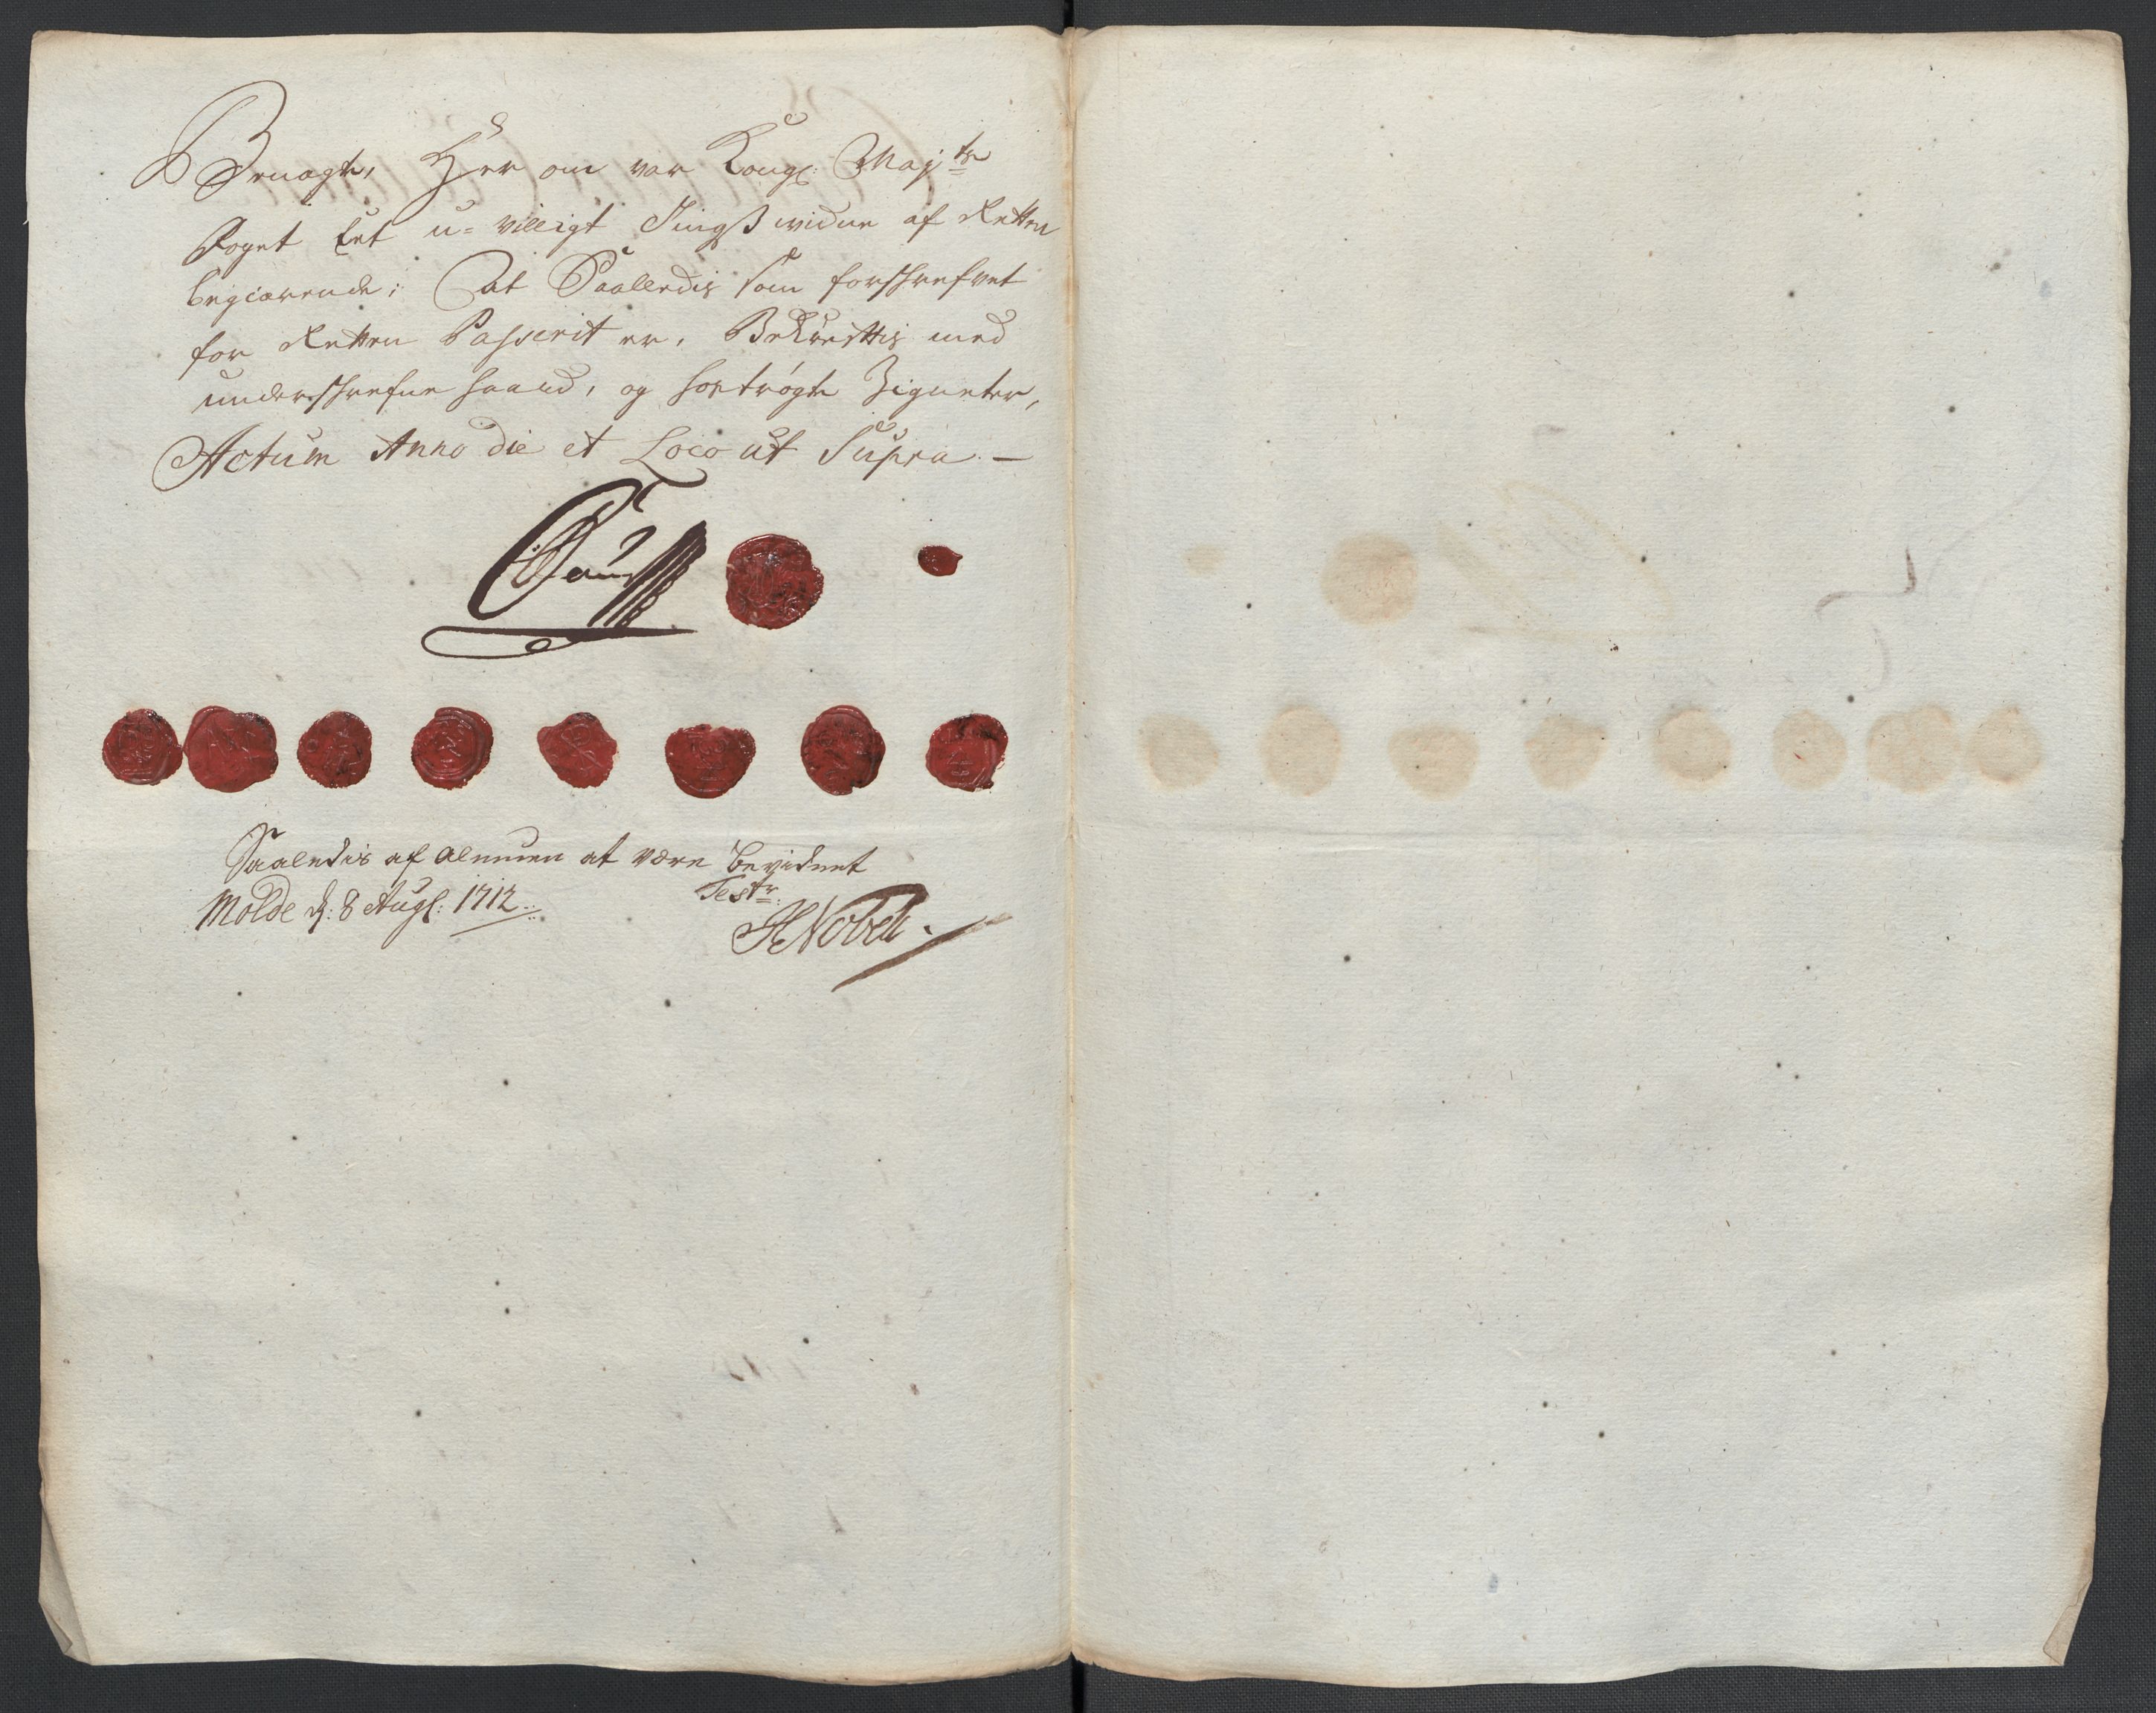 Benægte, Her om var Kongl: Mayts
Foget Eet u-villigt Tingswidne af Retten
begiærende; At Saaledis som forschrefvet
for Retten Passerit er, Bekreftis med
underschrefne haand, og hostrøgte Zigneter,
Actum Anno die et Loco ut Supra –
Saaledis af almuen at være bevidnet
Molde d: 8 Augl: 1712
Testr:
HNobell.